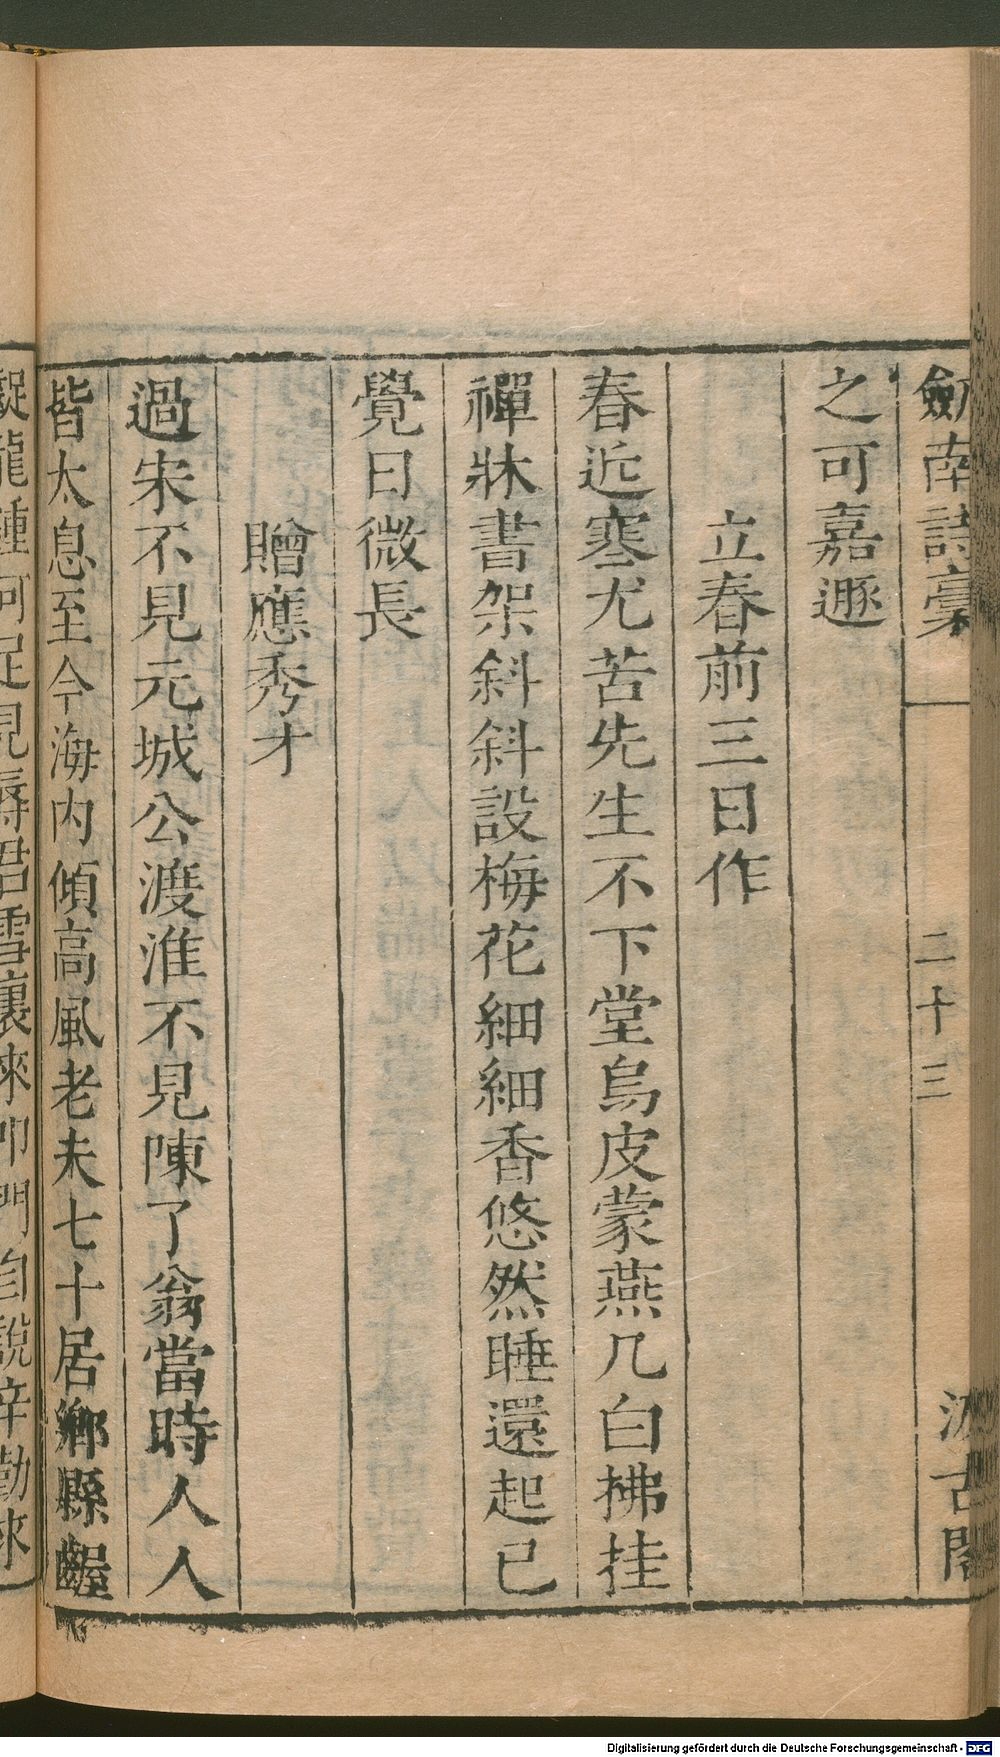 劒南詩稾
二十三
汲古閣
之可嘉遯
立春前三日作
春近寒尤苦先生不下堂烏皮蒙燕几白拂挂
禪牀書架斜斜設梅花細細香悠然睡還起已
覺日微長
贈應秀才
過宋不見元城公渡淮不見陳了翁當時人人
皆太息至今海內傾高風老夫七十居鄉縣齷
齪龍鍾何足見辱君雪裏來叩門自說辛勤來
Digitalisierung gefördert durch die Deutsche Forschungsgemeinschaft - DFG